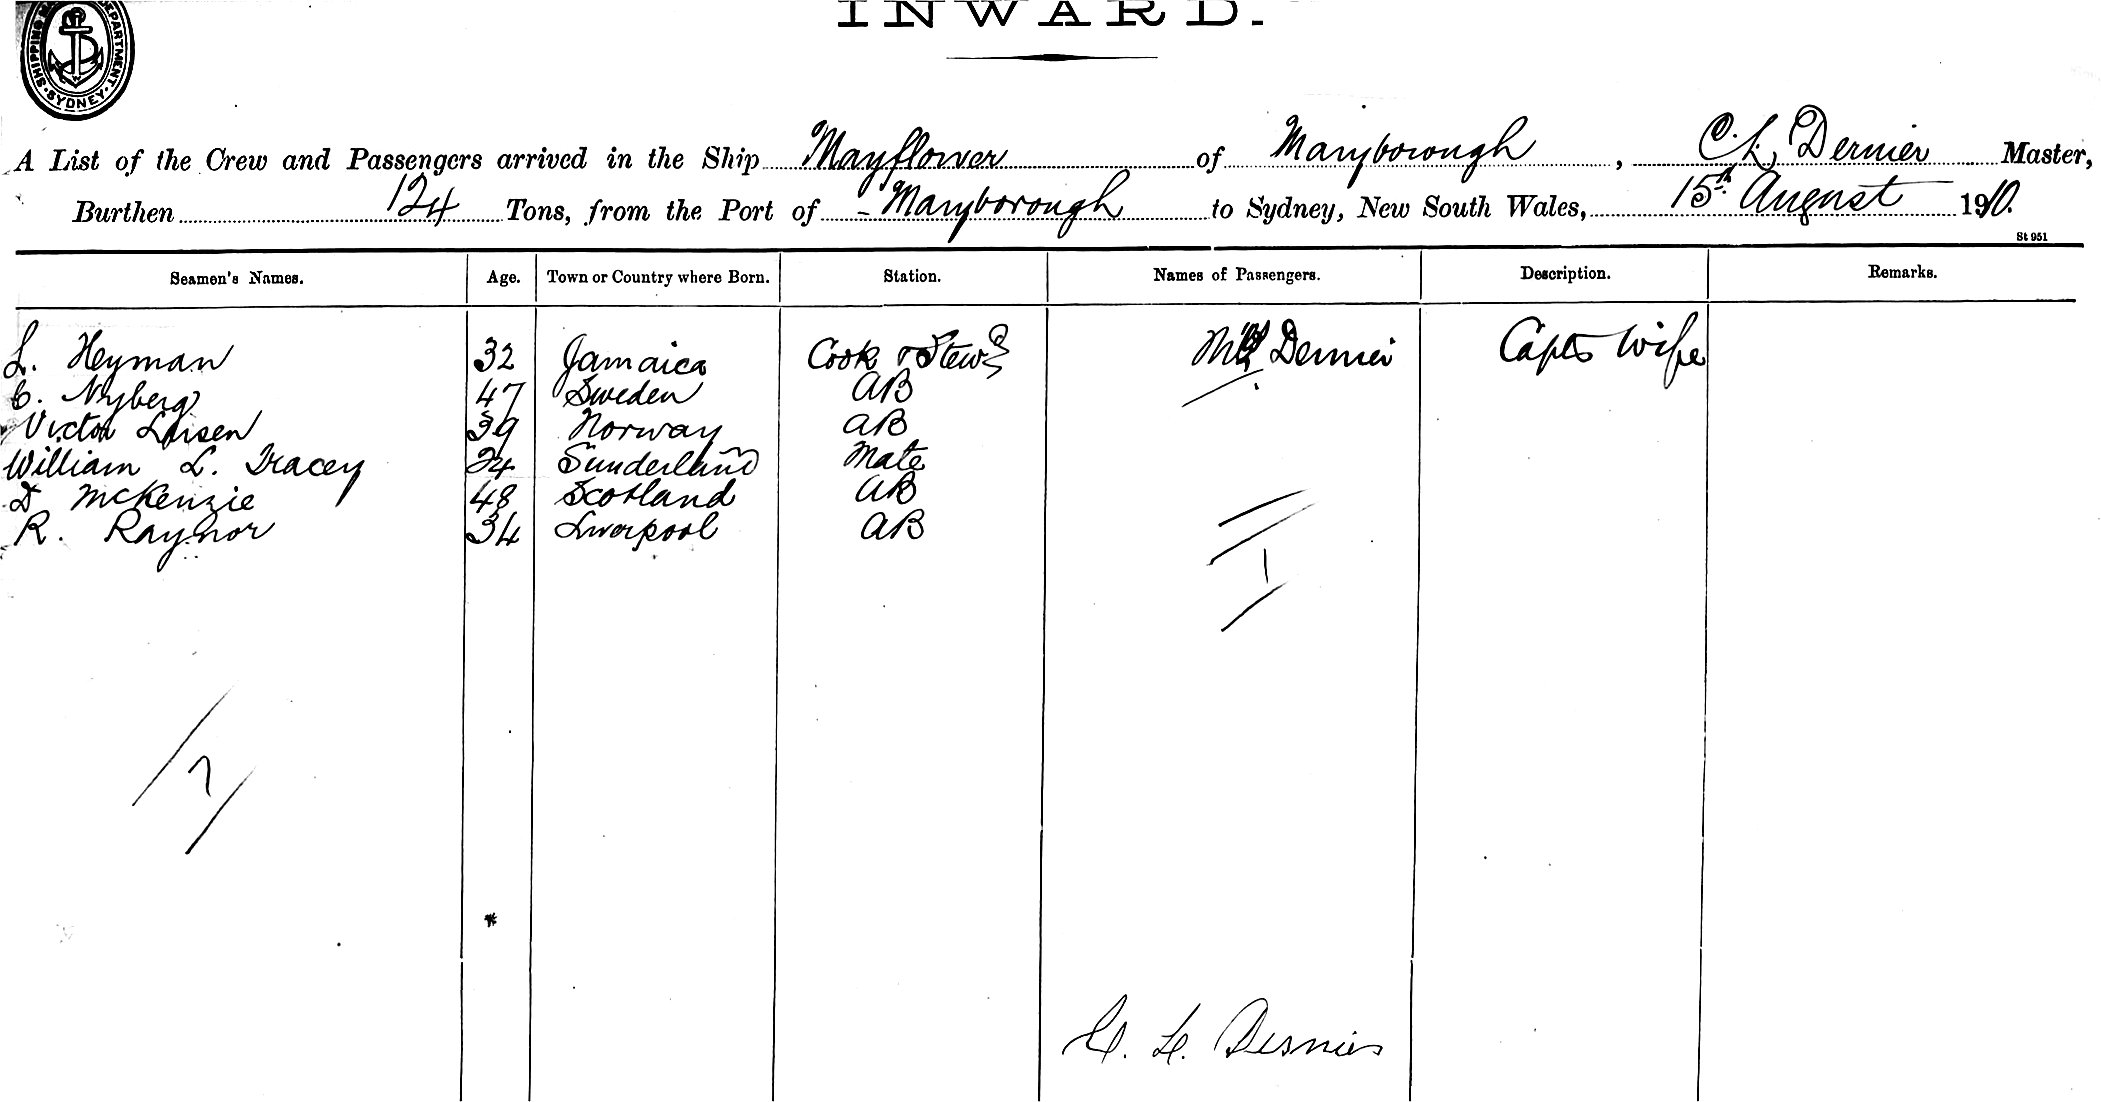 INWARD.
SHIPPING DEPARTMENT SYDNEY
A List of the Crew and Passengers arrived in the Ship Mayflower of Maryborough, C. L. Dernier Master,
Burthen 124 Tons, from the Port of - Maryborough to Sydney, New South Wales, 15th August 1910.
St 951
Seamen's Names. Age. Town or Country where Born. Station. Names of Passengers. Description. Remarks.
L. Heyman 32 Jamaica Cook & Stewd Mrs Dernier Capts Wife
C. Nyberg 47 Sweden AB
Victor Larsen 39 Norway AB
William L. Tracey 24 Sunderland Mate
D McKenzie 48 Scotland AB
R. Raynor 34 Liverpool AB
1
7
C. L. Dernier